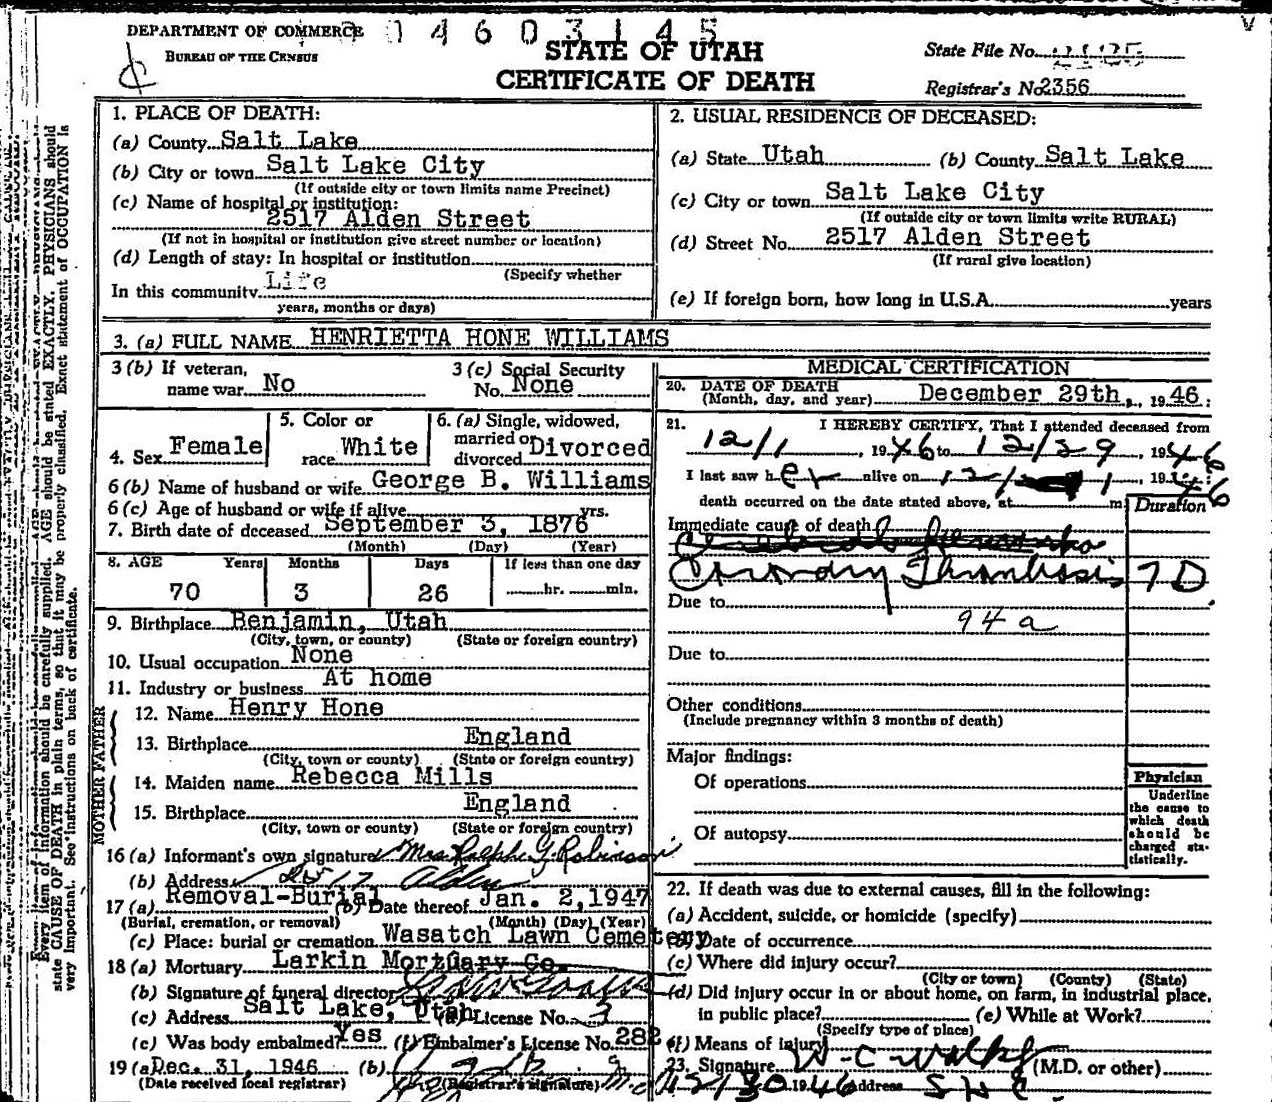 DEPARTMENT OF COMMERCE
BUREAU OF THE CENSUS
14603145
STATE OF UTAH
CERTIFICATE OF DEATH
State File No.
Registrar's No. 2356
1. PLACE OF DEATH:
(a) County Salt Lake
(b) City or town Salt Lake City
(If outside city or town limits name Precinct)
(c) Name of hospital or institution:
2517 Alden Street
(If not in hospital or institution give street number or location)
(d) Length of stay: In hospital or institution
(Specify whether
In this community Life
years, months or days)
2. USUAL RESIDENCE OF DECEASED:
(a) State Utah (b) County Salt Lake
(c) City or town Salt Lake City
(If outside city or town limits write RURAL)
(d) Street No. 2517 Alden Street
(If rural give location)
(e) If foreign born, how long in U.S.A. years
3. (a) FULL NAME HENRIETTA HONE WILLIAMS
3 (b) If veteran, name war No
3 (c) Social Security No. None
4. Sex Female
5. Color or race White
6. (a) Single, widowed, married or divorced Divorced
6 (b) Name of husband or wife George B. Williams
6 (c) Age of husband or wife if alive yrs.
7. Birth date of deceased September 3, 1876
(Month) (Day) (Year)
8. AGE Years Months Days If less than one day
70 3 26 hr. min.
9. Birthplace Benjamin, Utah
(City, town, or county) (State or foreign country)
10. Usual occupation None
11. Industry or business At home
FATHER
12. Name Henry Hone
13. Birthplace England
(City, town or county) (State or foreign country)
MOTHER
14. Maiden name Rebecca Mills
15. Birthplace England
(City, town or county) (State or foreign country)
16 (a) Informant's own signature Mrs Ralph G. Robinson
(b) Address 2517 Alden
17 (a) Removal-Burial (b) Date thereof Jan. 2, 1947
(Burial, cremation, or removal) (Month) (Day) (Year)
(c) Place: burial or cremation Wasatch Lawn Cemetery
18 (a) Mortuary Larkin Mortuary Co.
(b) Signature of funeral director
(c) Address Salt Lake, Utah License No. 3
(c) Was body embalmed? Yes (f) Embalmer's License No. 282
19 (a) Dec. 31, 1946 (b)
(Date received local registrar) (Registrar's signature)
MEDICAL CERTIFICATION
20. DATE OF DEATH
(Month, day, and year) December 29th, 1946
21. I HEREBY CERTIFY, That I attended deceased from
12/1, 1946 to 12/29, 1946
I last saw her alive on 12/ 1, 1946
death occurred on the date stated above, at m.
Duration
Immediate cause of death
Coronary Thrombosis 7 D.
Due to
94a
Due to
Other conditions
(Include pregnancy within 3 months of death)
Major findings:
Of operations
Of autopsy
Physician
Underline
the cause to
which death
should be
charged sta-
tistically.
22. If death was due to external causes, fill in the following:
(a) Accident, suicide, or homicide (specify)
(b) Date of occurrence
(c) Where did injury occur?
(City or town) (County) (State)
(d) Did injury occur in or about home, on farm, in industrial place,
in public place? (e) While at Work?
(Specify type of place)
(f) Means of injury
23. Signature (M.D. or other)
12/30 1946 Address S L C
Every item of information should be carefully supplied. AGE should be stated EXACTLY. PHYSICIANS should
state CAUSE OF DEATH in plain terms, so that it may be properly classified. Exact statement of OCCUPATION is
very important. See instructions on back of certificate.